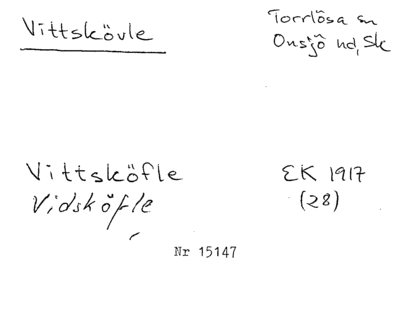 Vittskövle
Torrlösa sn
Onsjö hd, Sk
Vittsköfle
EK 1917
Vidsköfle
(28)
Nr 15147